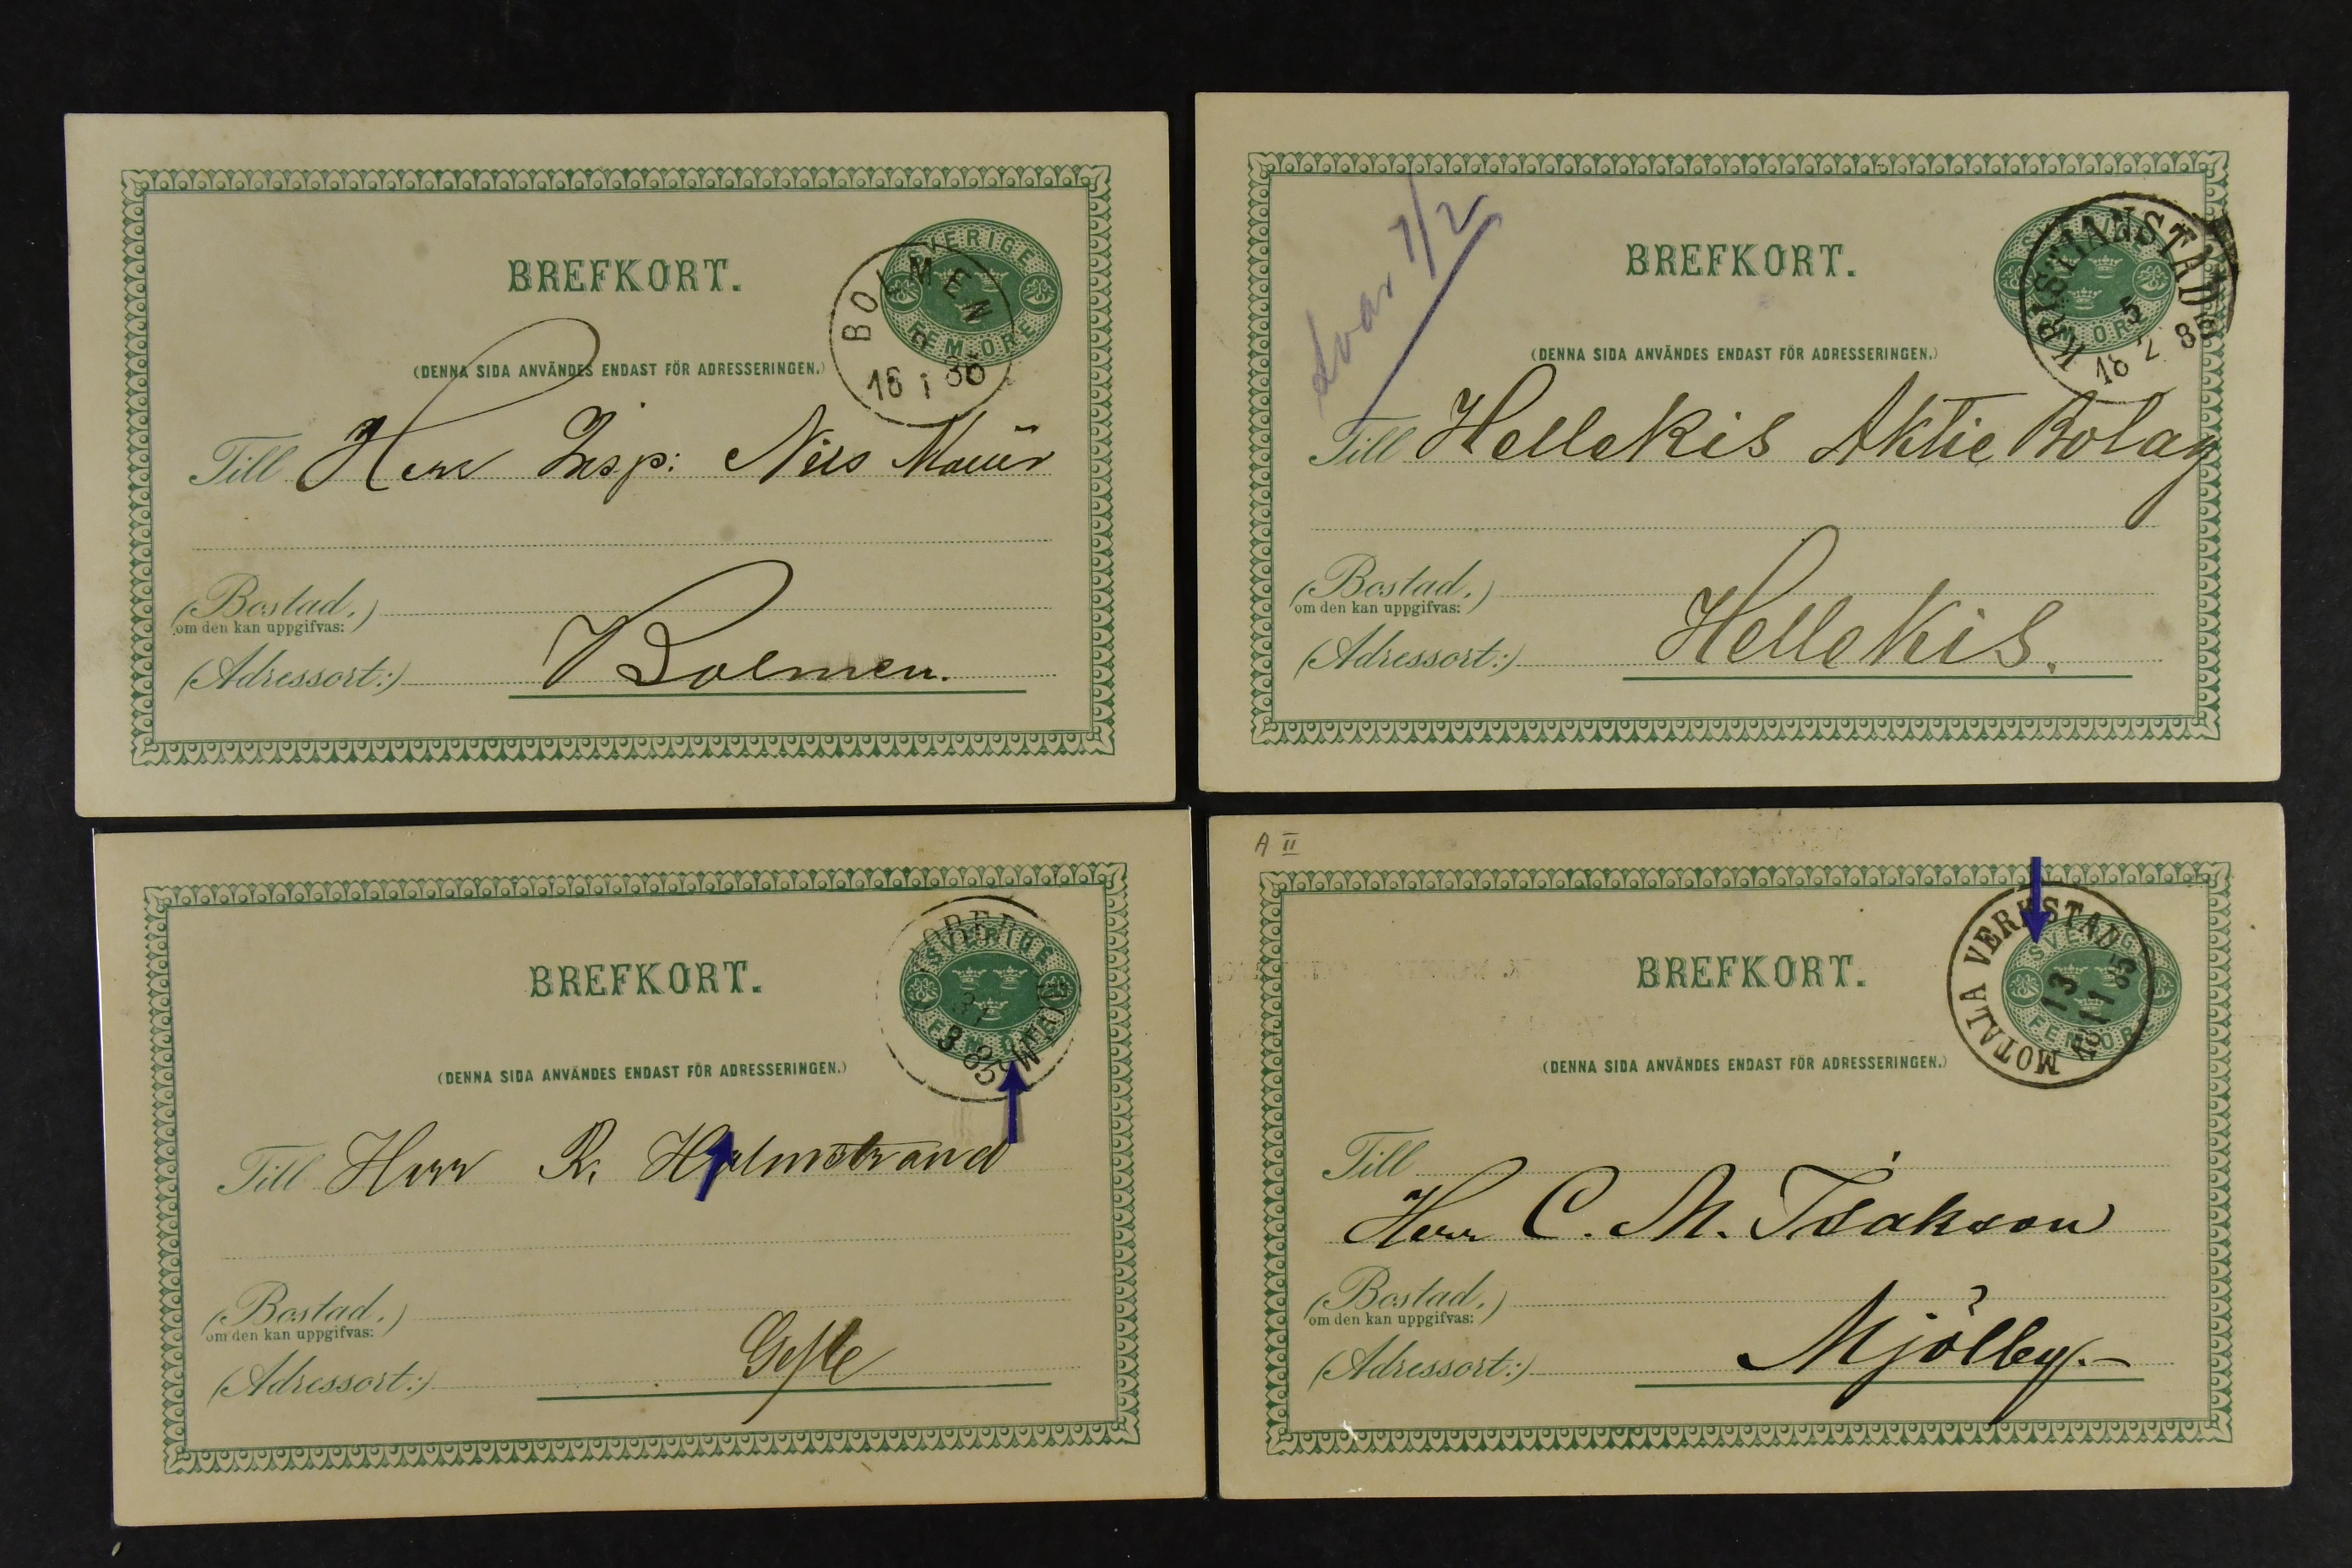 BREFKORT.
SVERIGE
FEM ÖRE
BOLMEN
18 1 86
(DENNA SIDA ANVÄNDES ENDAST FÖR ADRESSERINGEN.)
Till Herr Insp: Nils
(Bostad,)
om den kan uppgifvas:
(Adressort:) Bolmen.
Svar 7/2
BREFKORT.
SVERIGE
FEM ÖRE
KRISTIANSTAD
5
18 2 85
(DENNA SIDA ANVÄNDES ENDAST FÖR ADRESSERINGEN.)
Till Hellekis Aktie Bolag
(Bostad,)
om den kan uppgifvas:
(Adressort:) Hellekis.
BREFKORT.
SVERIGE
FEM ÖRE
85
(DENNA SIDA ANVÄNDES ENDAST FÖR ADRESSERINGEN.)
Till Herr R. Holmstrand
(Bostad,)
om den kan uppgifvas:
(Adressort:) Gefle
A II
BREFKORT.
SVERIGE
FEM ÖRE
MOTALA VERKSTAD
13
18 11 85
(DENNA SIDA ANVÄNDES ENDAST FÖR ADRESSERINGEN.)
Till
Herr C. M. Isakson
(Bostad,)
om den kan uppgifvas:
(Adressort:) Mjölby.-